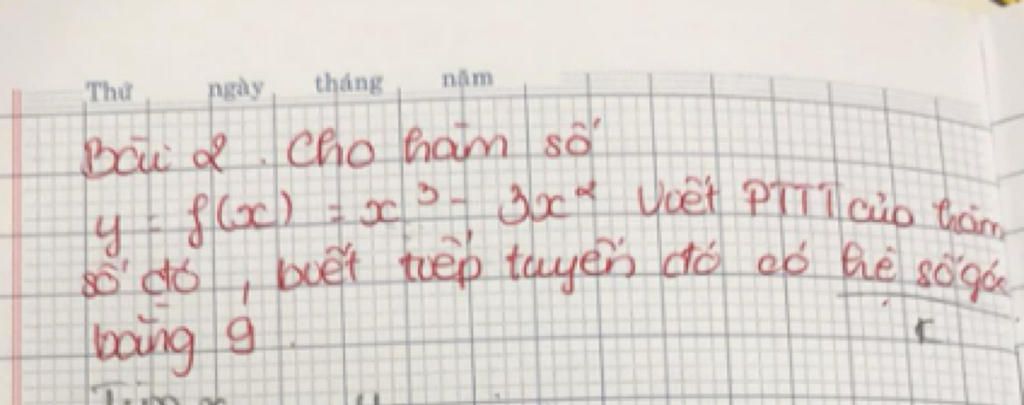 Thứ ngày tháng năm
Bài 2. Cho hàm số
y = f(x) = x³ - 3x² Viết PTTT của hàm
số đó, biết tiếp tuyến đó có hệ số góc
bằng 9.